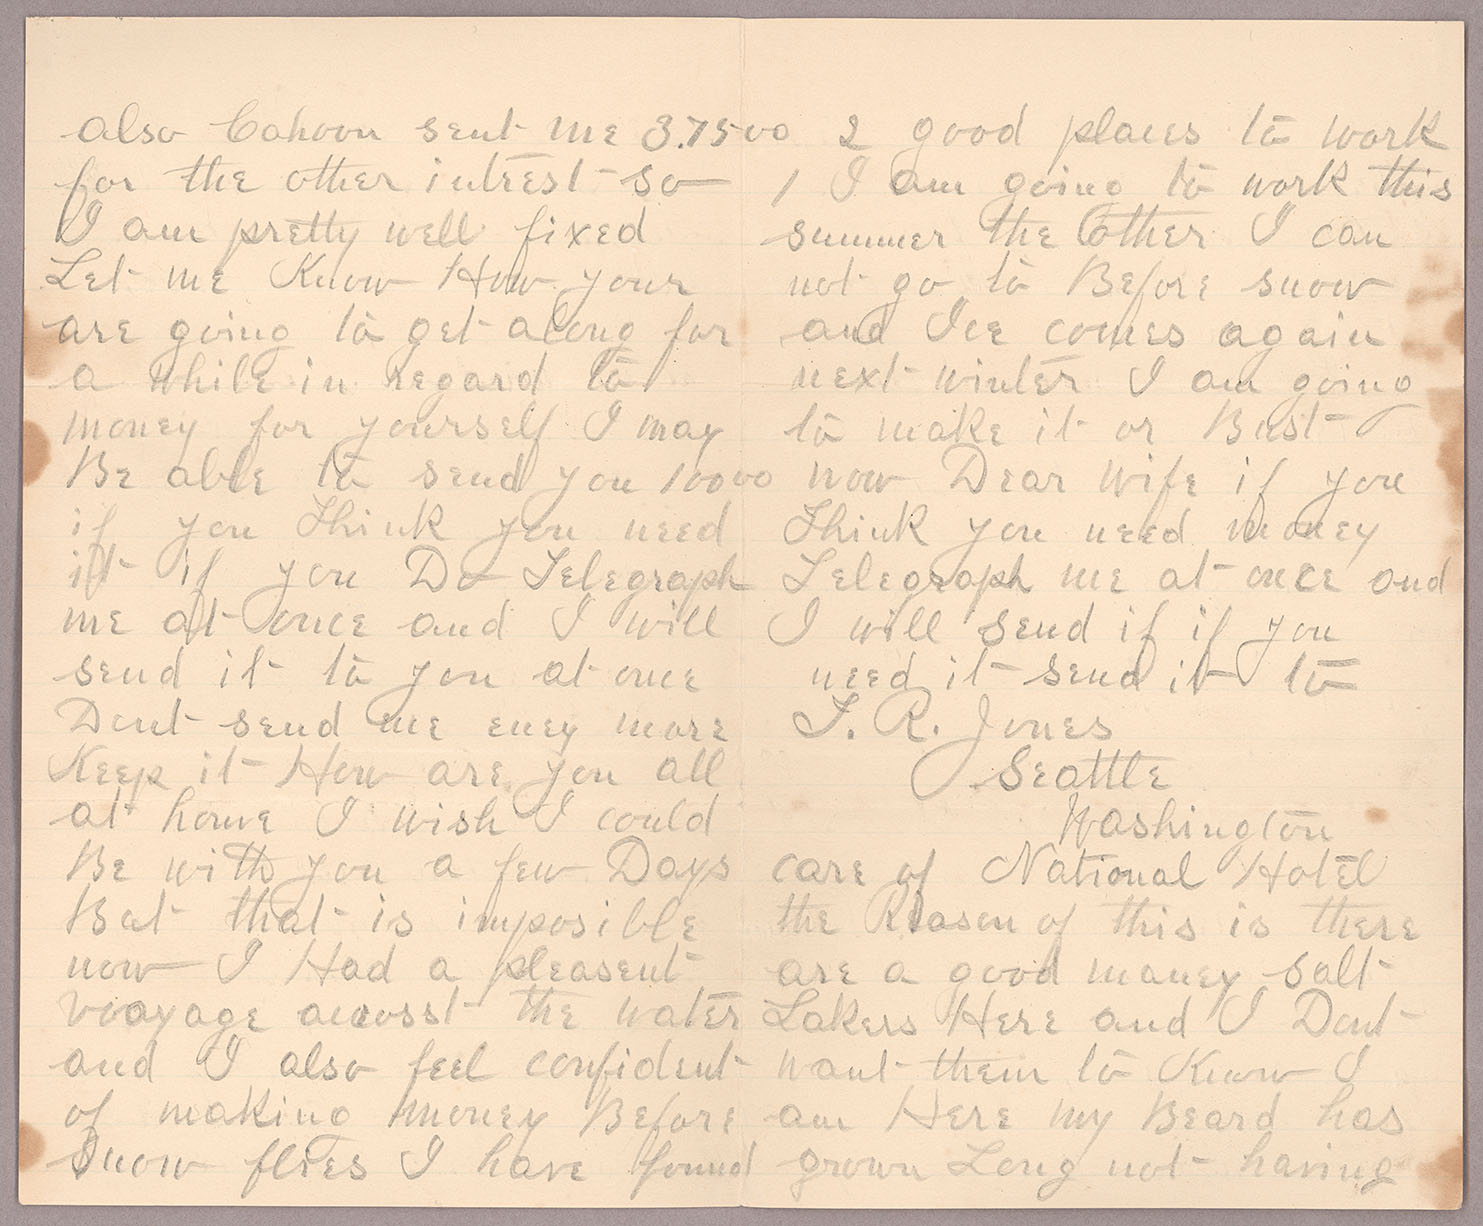 also Cahoon sent me 3.7500
for the other intrest so
I am pretty well fixed
Let me Know How your
are going to get along for
a while in regard to
money for yourself I may
Be able to send you 10000
if you Think you need
it if you Do Telegraph
me at once and I will
send it to you at once
Dont send me eney more
Keep it How are you all
at home I wish I could
Be with you a few Days
But that is imposible
now I Had a pleasent
voayage accosst the water
and I also feel confident
of making money Before
Snow flies I have found
2 good places to work
1 I am going to work this
summer the other I can
not go to Before snow
and Ice comes again
next winter I am going
to make it or Bust
now Dear wife if you
Think you need money
Telegraph me at once and
I will send if if you
need it send it to
T. R. Jones
Seattle
Washington
care of National Hotel
the Reason of this is there
are a good maney Salt
Lakers Here and I Dont
want them to Know I
am Here my Beard has
grown Long not having